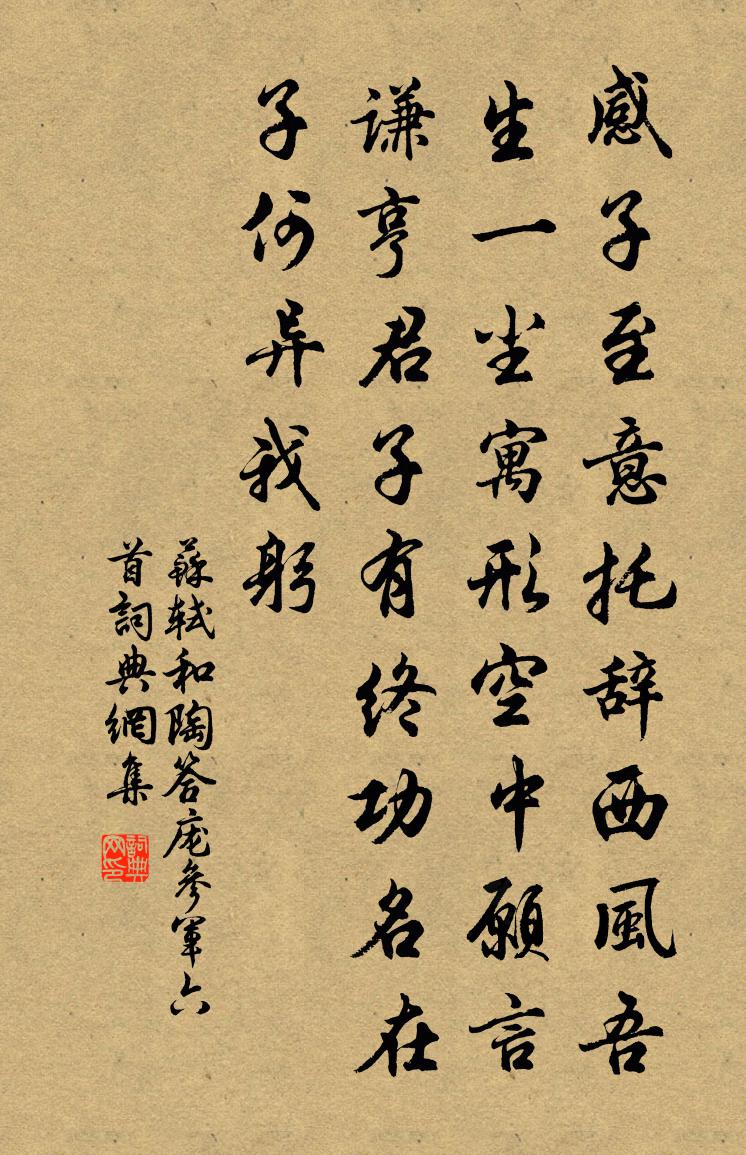 感子至意托辞西風吾
生一尘寓形空中願言
谦亨君子有终功名在
子何异我躬
蘇軾和陶答庞參軍六
首詞典網集
詞典网印